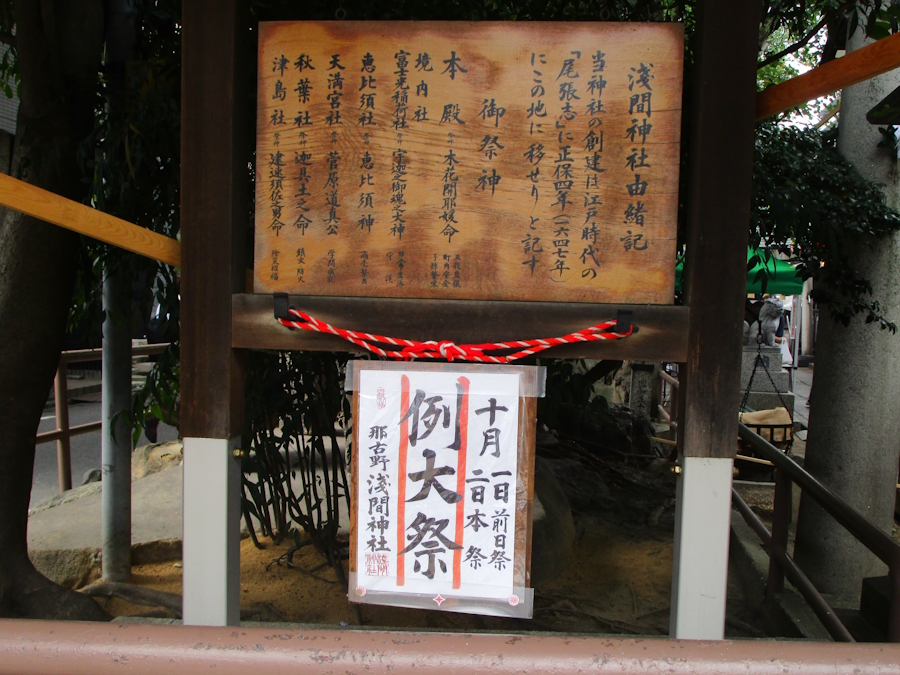 浅間神社由緒記
当神社の創建は江戸時代の
「尾張志」に正保四年(一六四七年)
にこの地に移せりと記す
御祭神
本殿 祭神 木花開耶媛命
境内社
富士光稲荷社 祭神 宇迦之御魂之大神 守護
恵比須社 祭神 恵比須神
天満宮社 祭神 菅原道真公
秋葉社 祭神 迦具土之命 鎮火 防火
津島社 祭神 建速須佐之男命
十月 一日 前日祭
二日 本祭
例大祭
那古野浅間神社